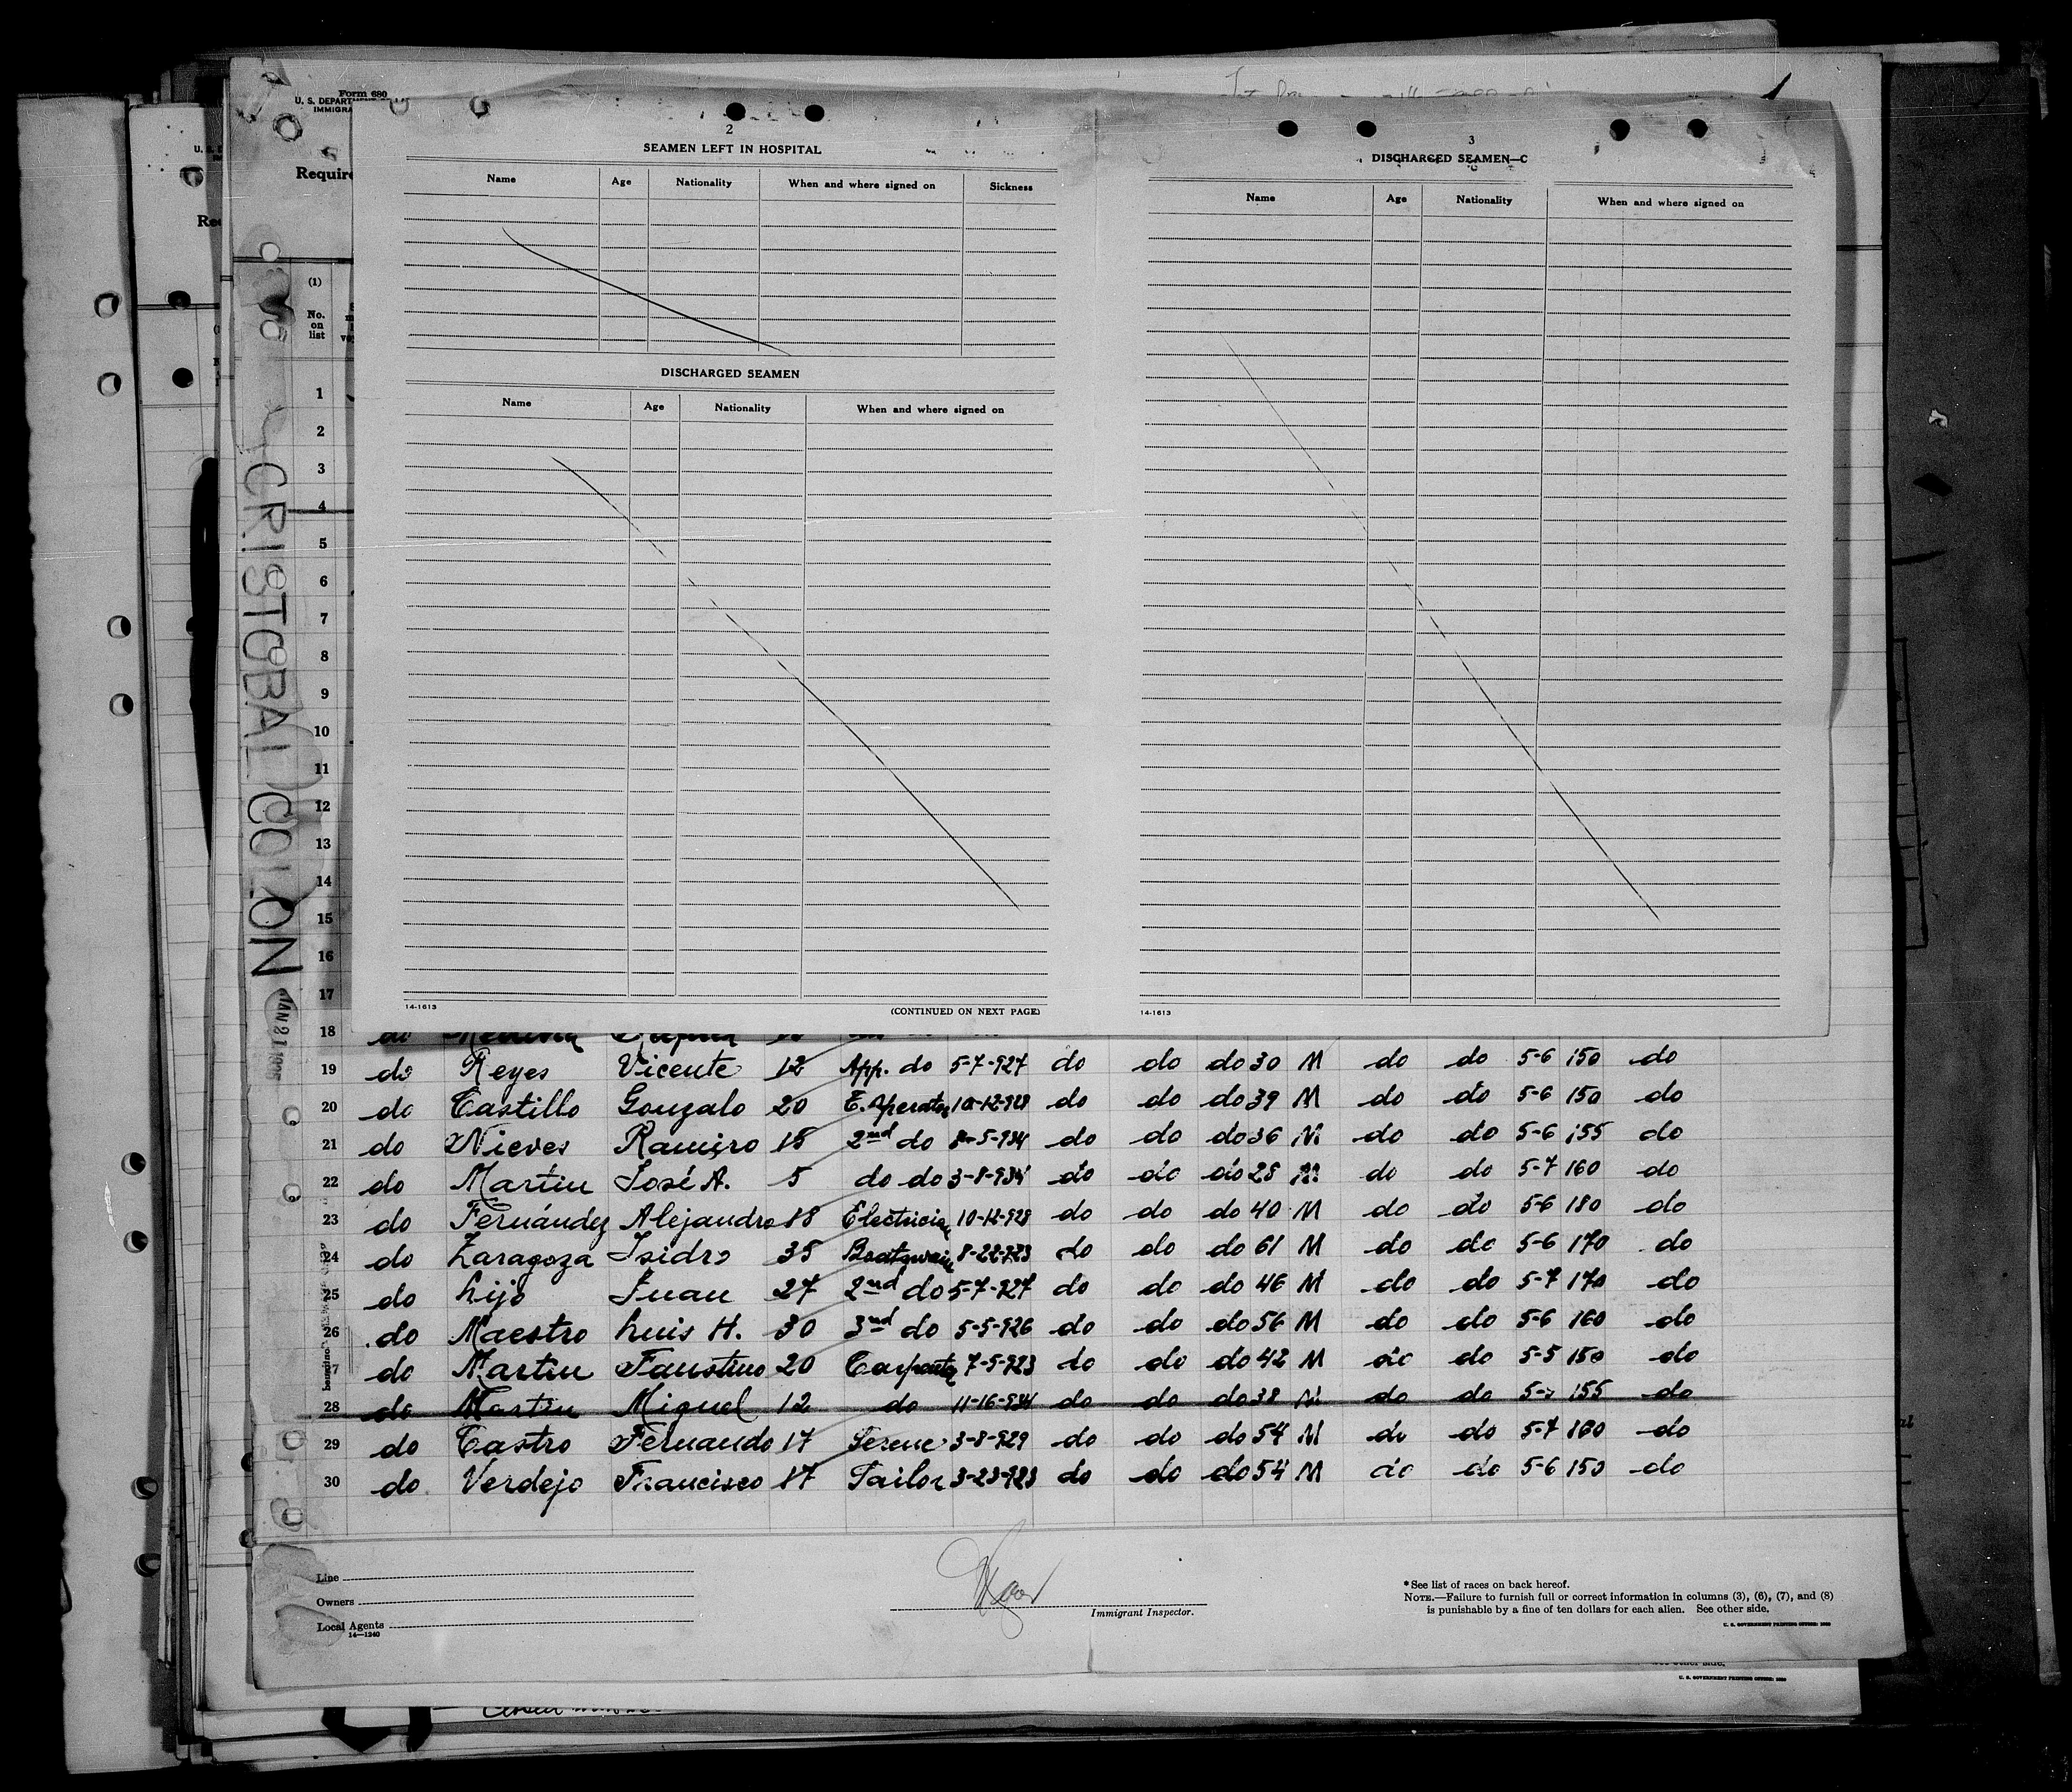 Form 680
U. S. DEPART
IMMIGRA
Require
1
2
SEAMEN LEFT IN HOSPITAL
Name Age Nationality When and where signed on Sickness
DISCHARGED SEAMEN
Name Age Nationality When and where signed on
14-1613 (CONTINUED ON NEXT PAGE)
3
DISCHARGED SEAMEN—C
Name Age Nationality When and where signed on
14-1613
CRISTOBAL COLON
(1)
No.
on
list
1
2
3
4
5
6
7
8
9
10
11
12
13
14
15
16
17
18
19 do Reyes Vicente 12 App. do 5-7-927 do do do 30 M do do 5-6 150 do
20 do Castillo Gonzalo 20 10-12-928 do do do 39 M do do 5-6 150 do
21 do Nieves Ramiro 15 2nd do 8-5-934 do do do 36 M do do 5-6 155 do
22 do Martin José A. 5 do do 3-8-934 do do do 28 M do do 5-7 160 do
23 do Fernández Alejandro 18 Electrician 10-12-928 do do do 40 M do do 5-6 180 do
24 do Zaragoza Isidro 35 Boatswain 8-22-923 do do do 61 M do do 5-6 170 do
25 do Lijo Juan 27 2nd do 5-7-927 do do do 46 M do do 5-7 170 do
26 do Maestro Luis H. 30 3nd do 5-5-926 do do do 56 M do do 5-6 160 do
27 do Martin Faustino 20 Carpenter 7-5-923 do do do 42 M do do 5-5 150 do
28 do Martin Miguel 12 do 11-16-934 do do do 38 M do do 155 do
29 do Castro Fernando 17 3-8-929 do do do 54 M do do 5-7 160 do
30 do Verdejo Francisco 17 Tailor 3-23-923 do do do 54 M do do 5-6 150 do
Line
Owners
Local Agents
14—1240
Immigrant Inspector.
*See list of races on back hereof.
NOTE.—Failure to furnish full or correct information in columns (3), (6), (7), and (8)
is punishable by a fine of ten dollars for each alien. See other side.
U. S. GOVERNMENT PRINTING OFFICE
U. S. GOVERNMENT PRINTING OFFICE